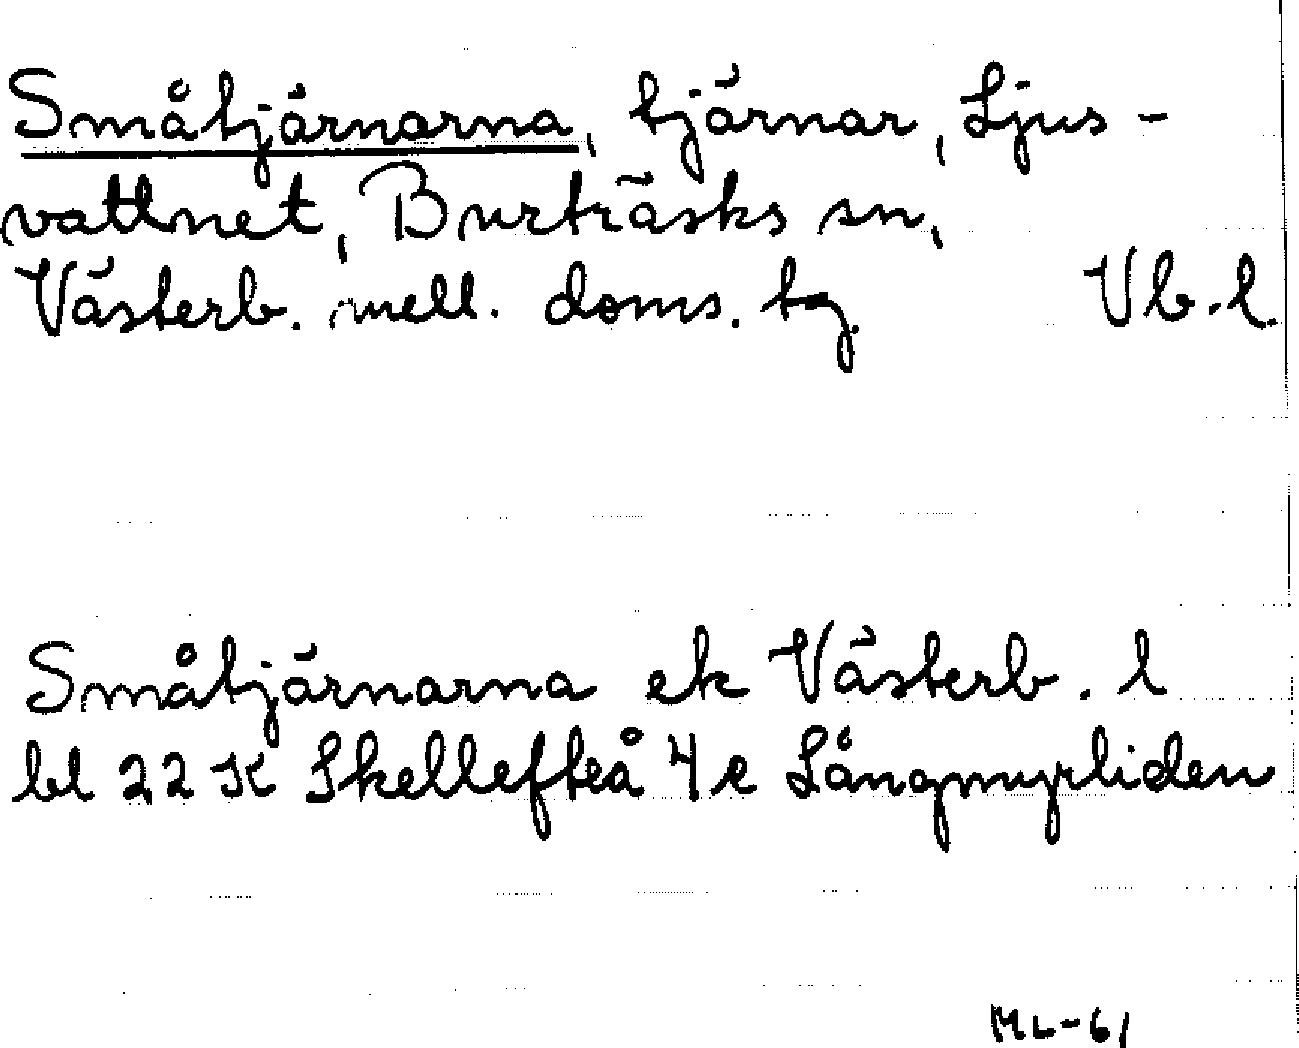 Småtjärnarna, tjärnar, Ljus-
vattnet, Burträsks sn,
Västerb. mell. doms. tg. Vb.l.
Småtjärnarna ek Västerb. l
bl 22 K Skellefteå 4 e Långmyrliden
ML-61